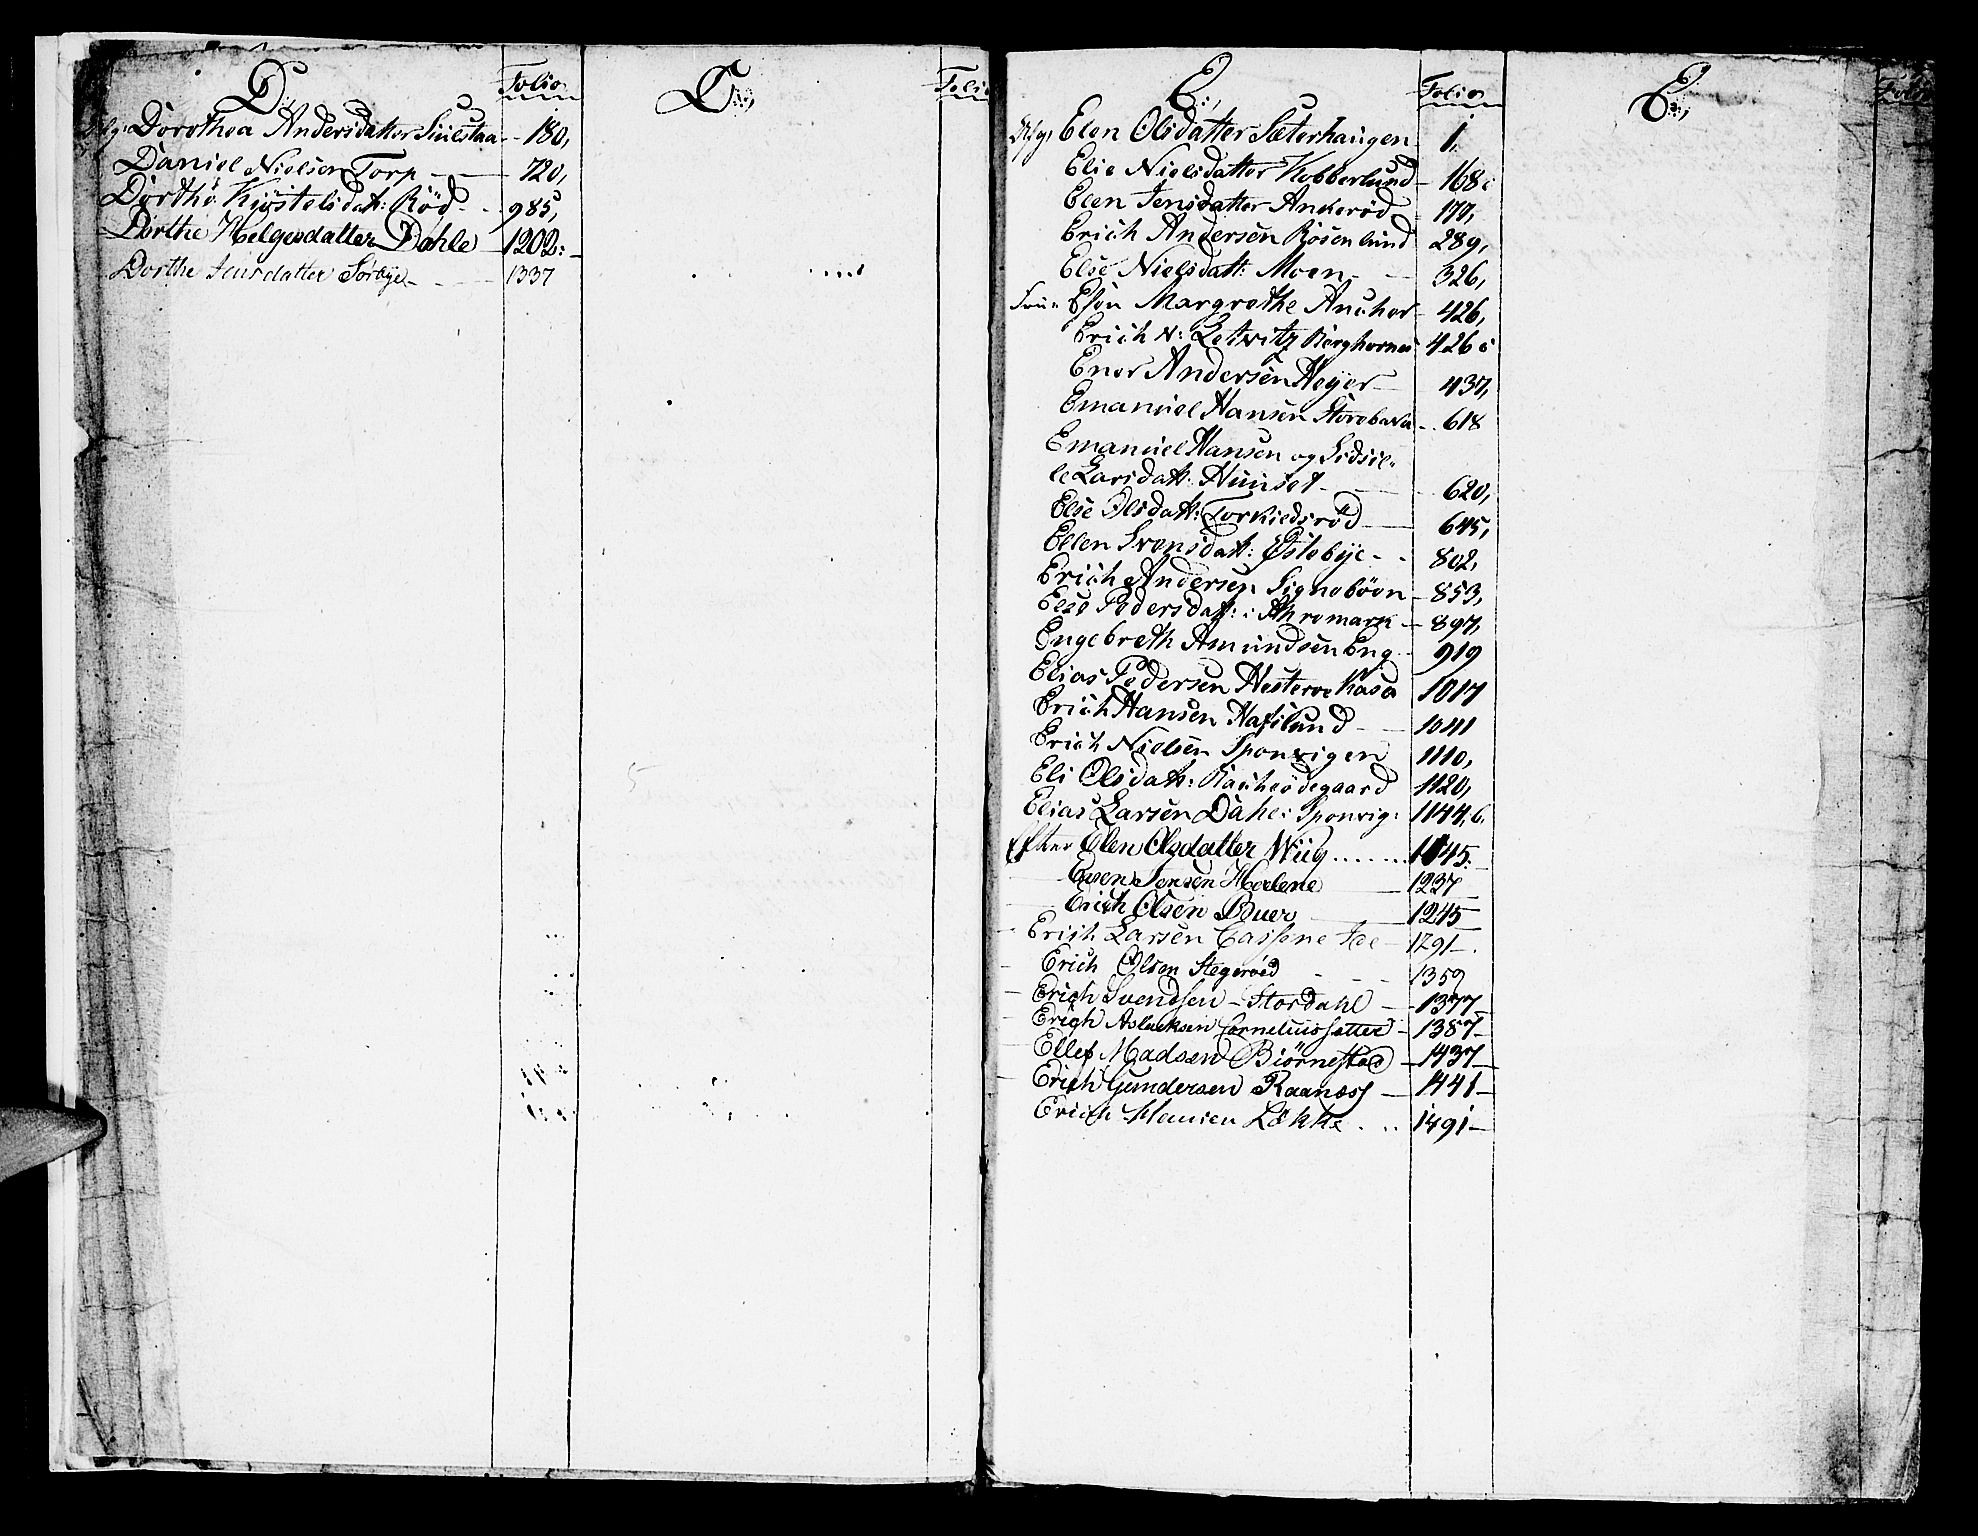 D:
Folio
Dorothea Andersdatter - 180,
Daniel Nielsen Torp - 720,
Dorthe Kystelsdatt: Röd - 985,
Dorthe Helgesdatter Dahle 1202:
Dorthe Jensdatter Sörbye - 1337
Folio
E:
Folio
Elen Olsdatter Sæterhaugen 1.
Elie Nielsdatter Kobberlund 168
Elen Jensdatter Ankeröd 177,
Erich Andersen Rosenlund 289,
Else Nielsdatt: Moen - 326,
Margrethe Ancher 426,
Erich N: 426
Ener Andersen Heyer 437,
Emanuel Hansen 618
Emanuel Hansen og Sidsil-
le Larsdatt: Hunset - 620,
Else Olsdatt: Torkildsröd 645,
Ellen Svensdatt: Östebye - 802,
Erich Andersen Signeböen - 853,
Else Pedersdatt: 897,
Engebreth Amundsen Eng 919
Elias Pedersen 1017
Erich Hansen Hafslund - 1041
Erich Nielsen Sponvigen 1110,
Eli Olsdatt: 1120,
Elias Larsen Dahl: Sponvig: 1144.
Efter Elen Olsdatter Wiig ....... 1145:
Jensen 1237
Erich Olsen Buer 1245
Erich Larsen 1291
Erich Olsen Stegeröed - 1359
Erich Svendsen - Stordahl - 1377
Erich Aslacksen Corneliussætter - 1387
Ellef Madsen Biörnestad - 1437
Erich Gundersen Raanæss - 1441
Erich Hansen Lökke 1491
E:
Folio